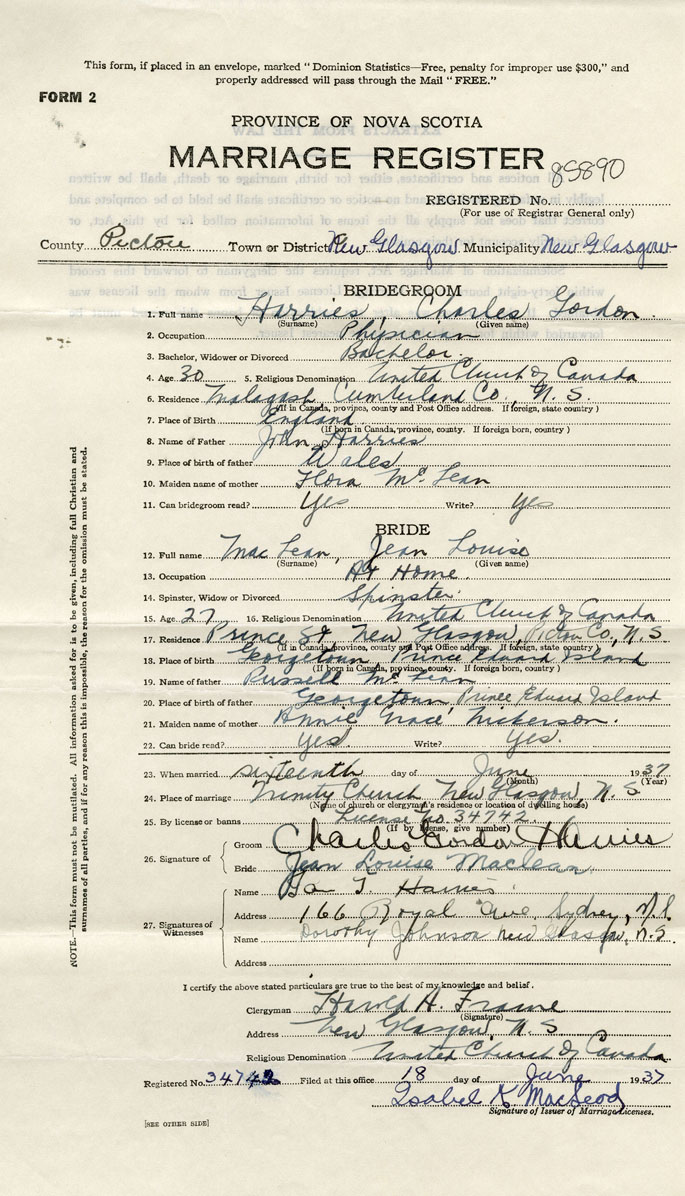 This form, if placed in an envelope, marked "Dominion Statistics—Free, penalty for improper use $300," and
properly addressed will pass through the Mail "FREE."
FORM 2
PROVINCE OF NOVA SCOTIA
MARRIAGE REGISTER
85890
REGISTERED No.
(For use of Registrar General only)
County Pictou Town or District New Glasgow Municipality New Glasgow
BRIDEGROOM
1. Full name Harries, Charles Gordon
(Surname) (Given name)
2. Occupation Physician
3. Bachelor, Widower or Divorced Bachelor.
4. Age 30 5. Religious Denomination United Church of Canada
6. Residence Malagash Cumberland Co., N. S.
(If in Canada, province, county and Post Office address. If foreign, state country)
7. Place of Birth England
(If born in Canada, province, county. If foreign born, country)
8. Name of Father John Harries
9. Place of birth of father Wales
10. Maiden name of mother Flora McLean
11. Can bridegroom read? Yes Write? Yes
BRIDE
12. Full name MacLean, Jean Louise
(Surname) (Given name)
13. Occupation At Home.
14. Spinster, Widow or Divorced Spinster
15. Age 27 16. Religious Denomination United Church of Canada
17. Residence Prince St. New Glasgow, Pictou Co., N. S
(If in Canada, province, county and Post Office address. If foreign, state country)
18. Place of birth Georgetown, Prince Edward Island
(If born in Canada, province, county. If foreign born, country)
19. Name of father Russell McLean
20. Place of birth of father Georgetown Prince Edward Island
21. Maiden name of mother Annie Grace Nickerson.
22. Can bride read? Yes Write? Yes.
23. When married sixteenth day of June 1937
(Month) (Year)
24. Place of marriage Trinity Church New Glasgow, N. S
(Name of church or clergyman's residence or location of dwelling house)
25. By license or banns License No. 34742
(If by license, give number)
26. Signature of
Groom Charles Gordon Harries
Bride Jean Louise Maclean
27. Signatures of Witnesses
Name Harries
Address 166 Royal Ave, Sydney, N.S.
Name Dorothy Johnson New Glasgow, N.S.
Address
I certify the above stated particulars are true to the best of my knowledge and belief.
Clergyman Harold A. Frame
(Signature)
Address New Glasgow, N. S
Religious Denomination United Church of Canada
Registered No. 34742 Filed at this office 18 day of June 1937
Isabel K MacLeod
Signature of Issuer of Marriage Licenses.
[SEE OTHER SIDE]
NOTE.—This form must not be mutilated. All information asked for is to be given, including full Christian and
surnames of all parties, and if for any reason this is impossible, the reason for the omission must be stated.